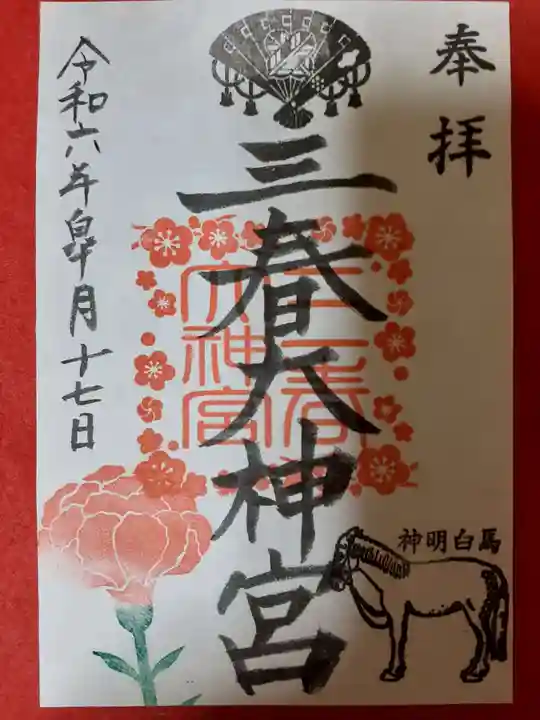 奉拝
三春大神宮
三春大神宮
馬白明神
令和六年皐月十七日